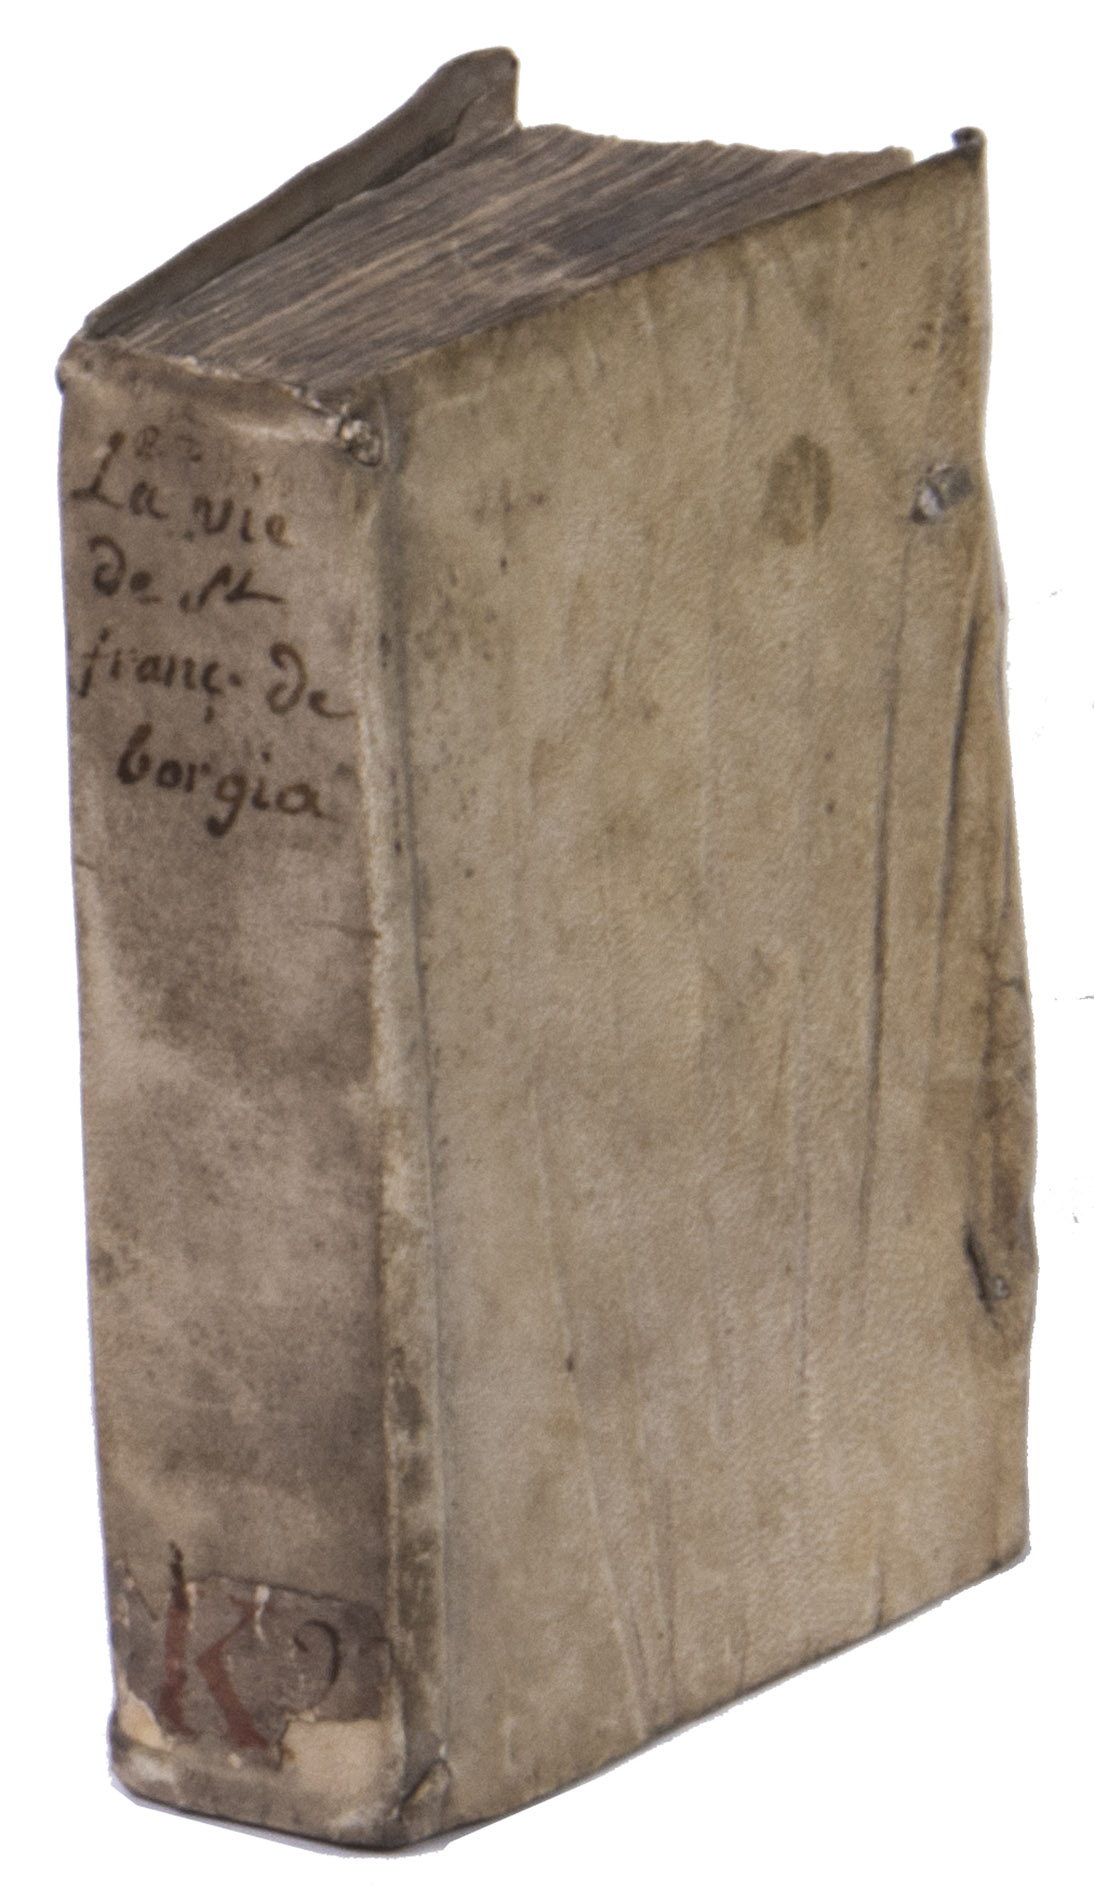 La vie
de st
franç. de
borgia
K 9